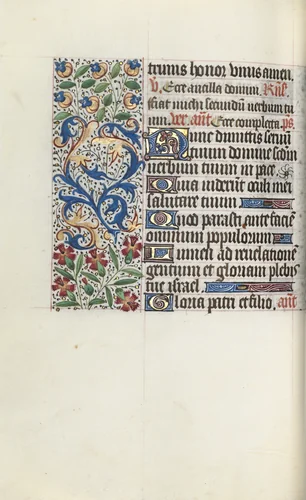 trinus honor vnus amen.
V. Ecce ancilla domini. Rns.
fiat michi secundū verbum tu
um. ver. ant. Ecce completa. ps
Nunc dimittis seruū
tuum domine secūdū
verbum tuum in pace.
Quia viderūt oculi mei
salutare tuum
Quod parasti ante faciē
omnium populorum
Lumen ad reuelationē
gentium et gloriam plebis
tue israel.
Gloria patri et filio. ant